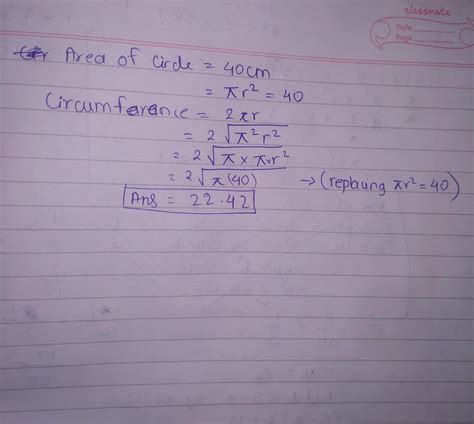 classmate
Date
Page
Area of Circle = 40cm
= πr² = 40
Circumfarance = 2πr
= 2√π²r²
= 2√π × πr²
= 2√π(40) → (replaung πr² = 40)
Ans = 22.42